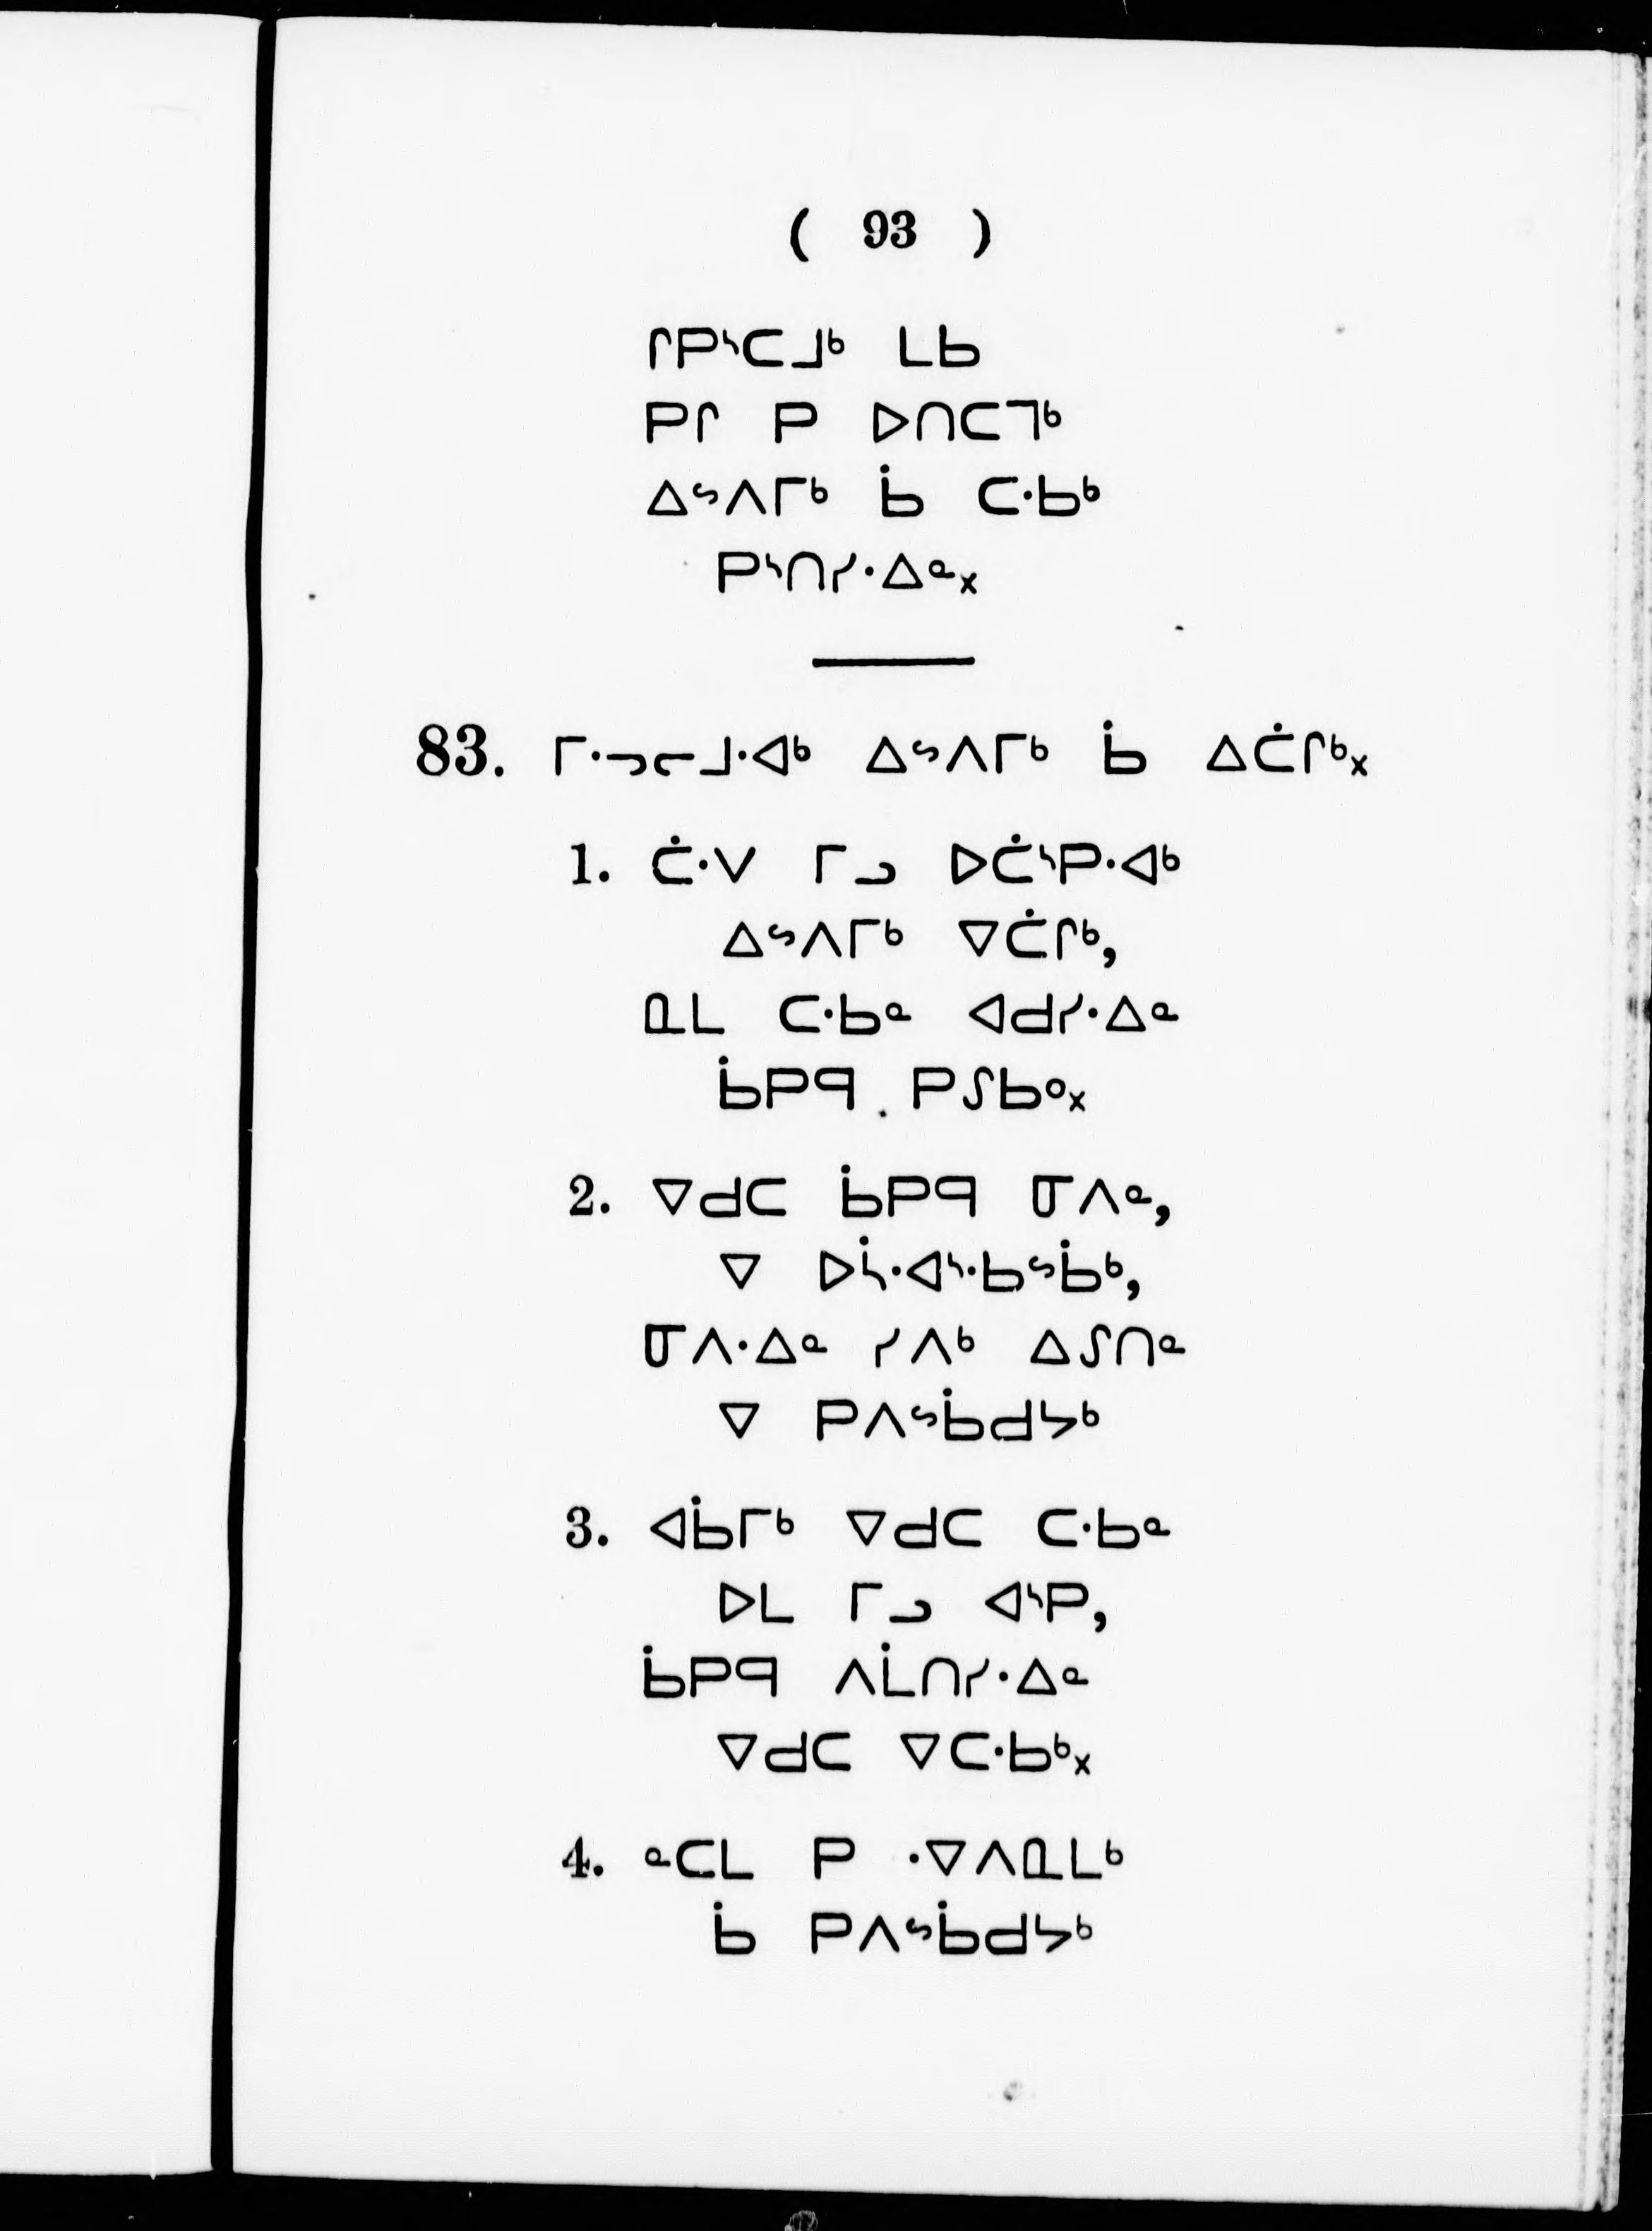 ( 93 )
ᒋᑭᔅᑕᒧᒃ ᒪᑲ
ᑭᒋ ᑭ ᐅᑎᑕᒣᒃ
ᐃᔥᐱᒥᒃ ᑳ ᑕᐧᑲᒃ
ᑭᔅᑎᓯᐧᐃᓐ᙮
83. ᒥᐧᓷᓕᒧᐧᐊᒃ ᐃᔥᐱᒥᒃ ᑳ ᐃᑖᒋᒃ᙮
1. ᑖᐧᐯ ᒥᓗ ᐅᑖᔅᑭᐧᐊᒃ
ᐃᔥᐱᒥᒃ ᐁᑖᒋᒃ,
ᓇᒪ ᑕᐧᑲᓐ ᐊᑯᓯᐧᐃᓐ
ᑳᑭᑫ ᑭᔑᑲᐤ᙮
2. ᐁᑯᑕ ᑳᑭᑫ ᓂᐱᓐ,
ᐁ ᐅᓵᐧᐊᔅᐧᑲᔥᑳᒃ,
ᓂᐱᐧᐃᓐ ᓯᐱᒃ ᐃᔑᑎᓐ
ᐁ ᑭᐱᔥᑳᑯᔭᒃ
3. ᐊᑳᒥᒃ ᐁᑯᑕ ᑕᐧᑲᓐ
ᐅᒪ ᒥᓗ ᐊᔅᑭ,
ᑳᑭᑫ ᐱᒫᑎᓯᐧᐃᓐ
ᐁᑯᑕ ᐁᑕᐧᑲᒃ᙮
4. ᓐᑕᒪ ᑭ ᐧᐁᐱᓇᒪᒃ
ᑳ ᑭᐱᔥᑳᑯᔭᒃ